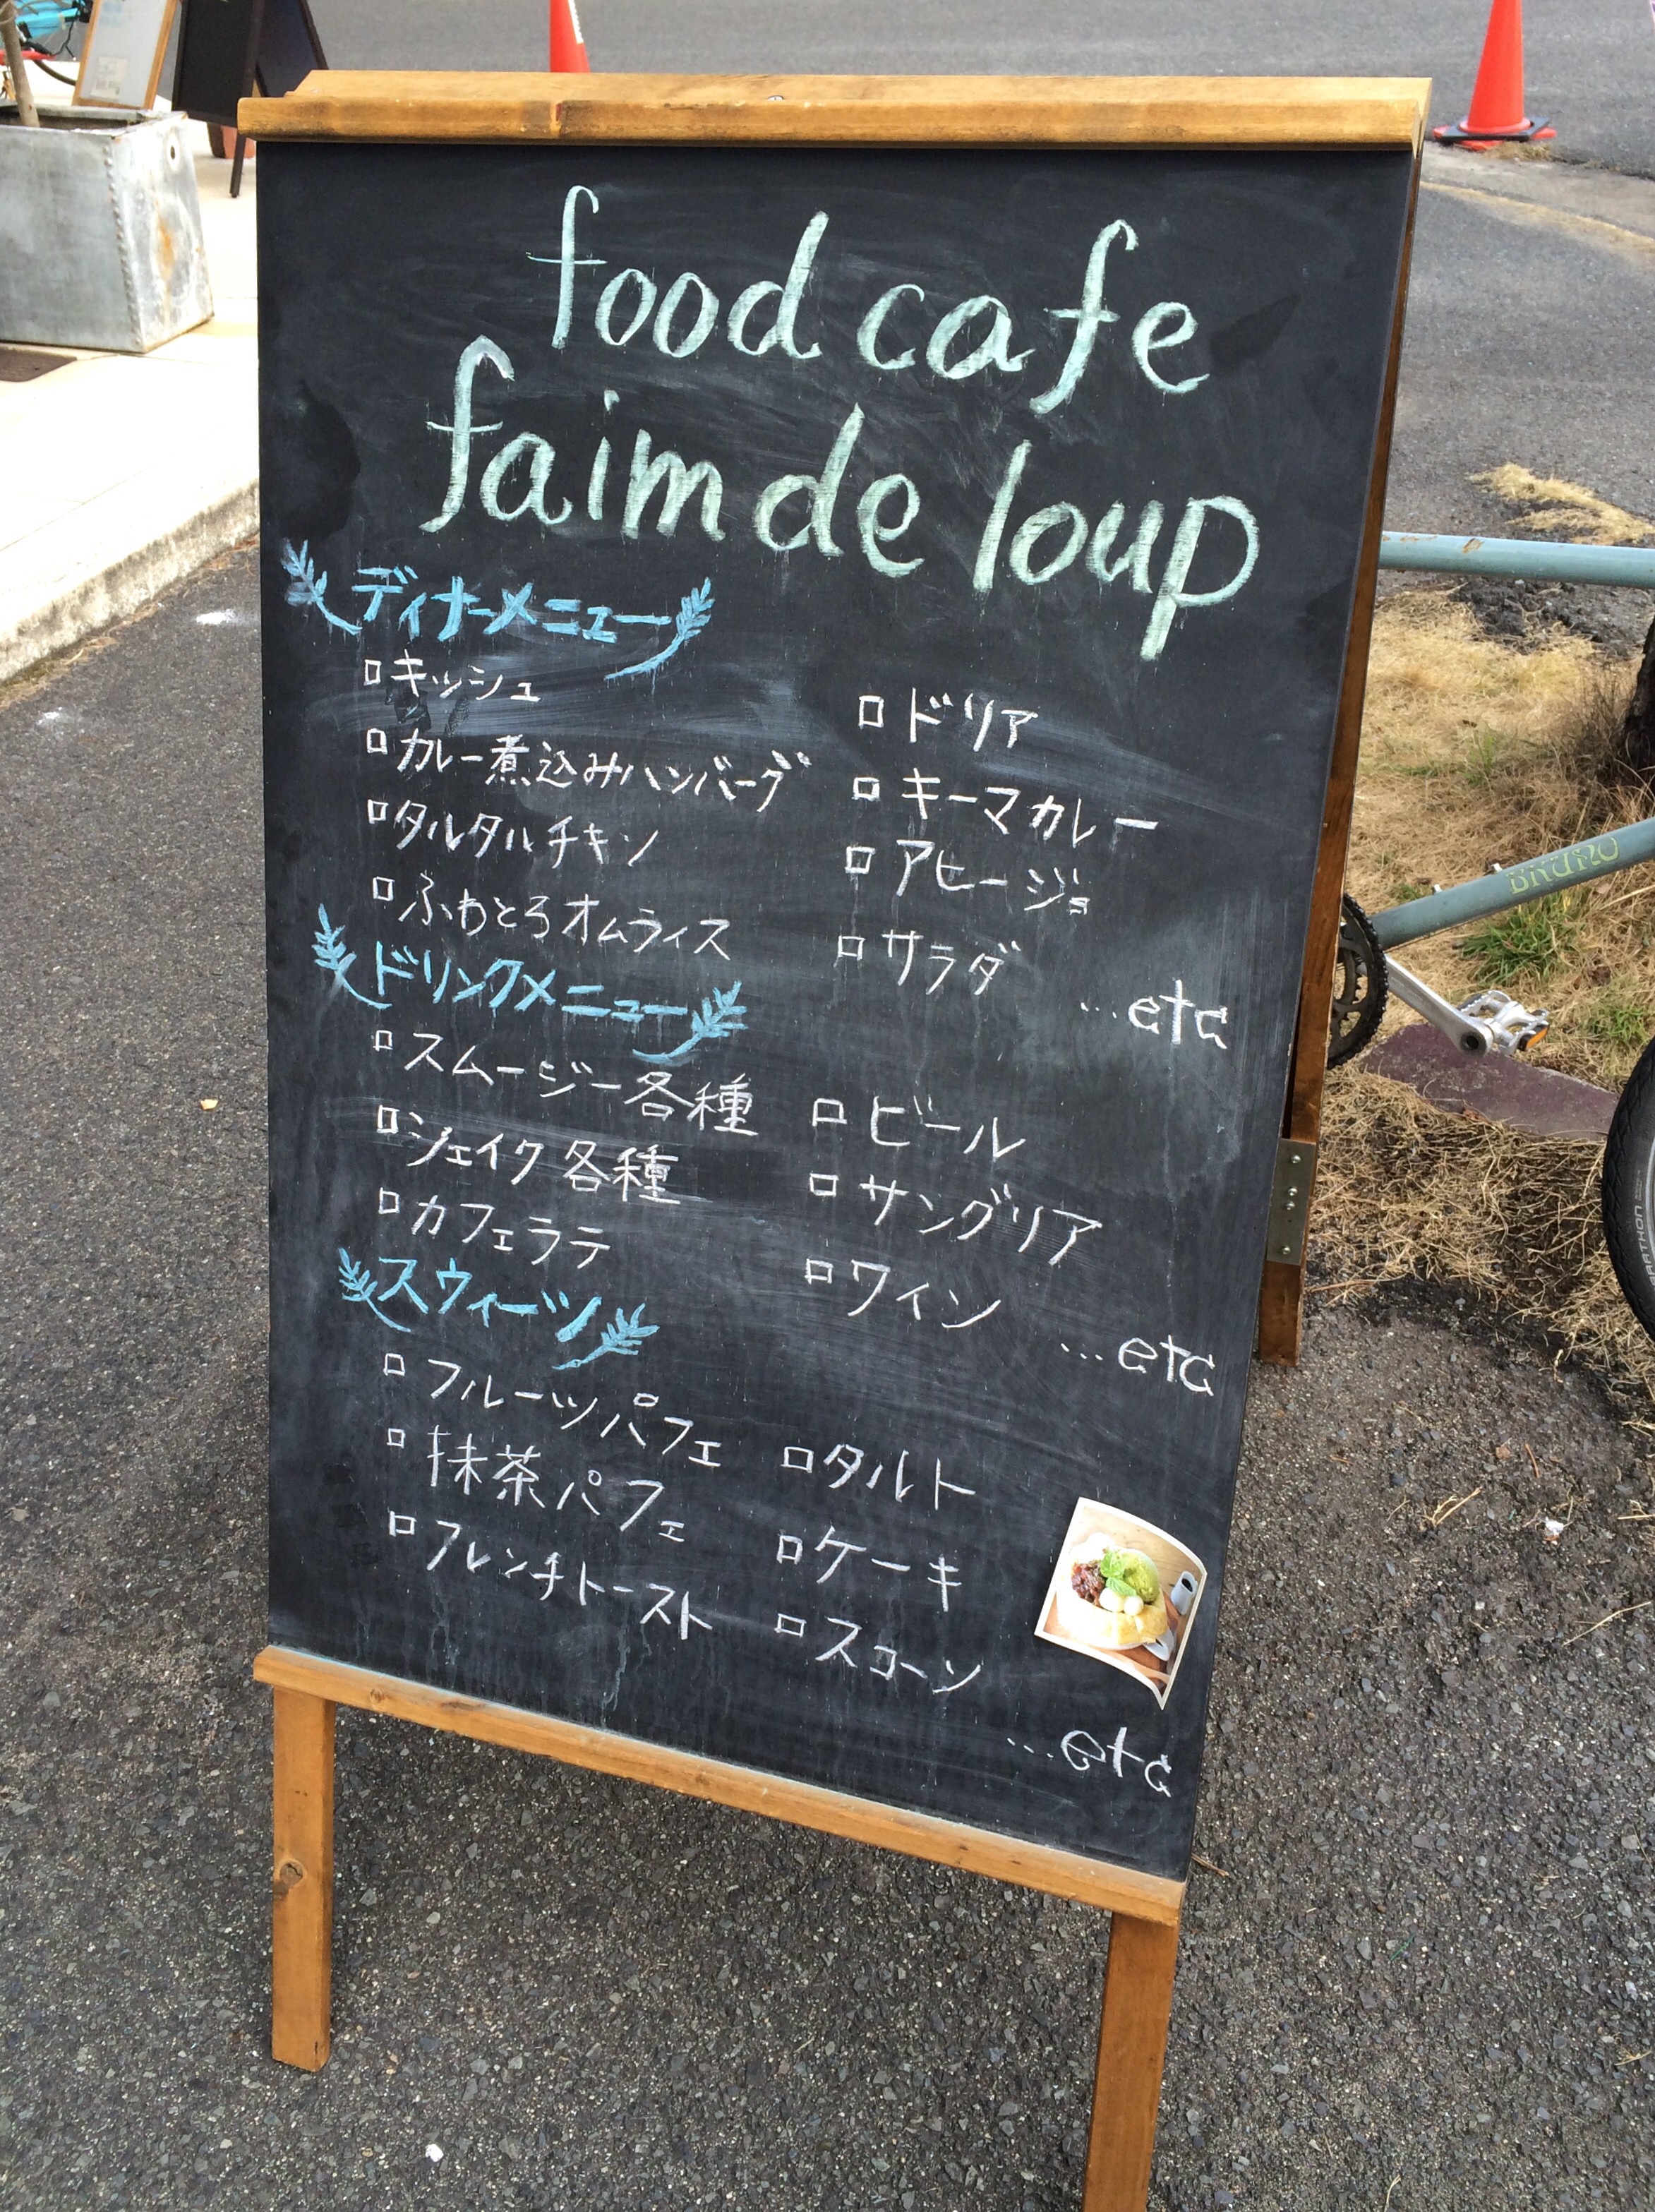 food cafe
faim de loup
ディナーメニュー
□キッシュ
□カレー煮込みハンバーグ
□タルタルチキン
□ふわとろオムライス
□ドリア
□キーマカレー
□アヒージョ
□サラダ
…etc
ドリンクメニュー
□スムージー各種
□シェイク各種
□カフェラテ
□ビール
□サングリア
□ワイン
…etc
スウィーツ
□フルーツパフェ
□抹茶パフェ
□フレンチトースト
□タルト
□ケーキ
□スコーン
…etc
BRUNO
MARATHON